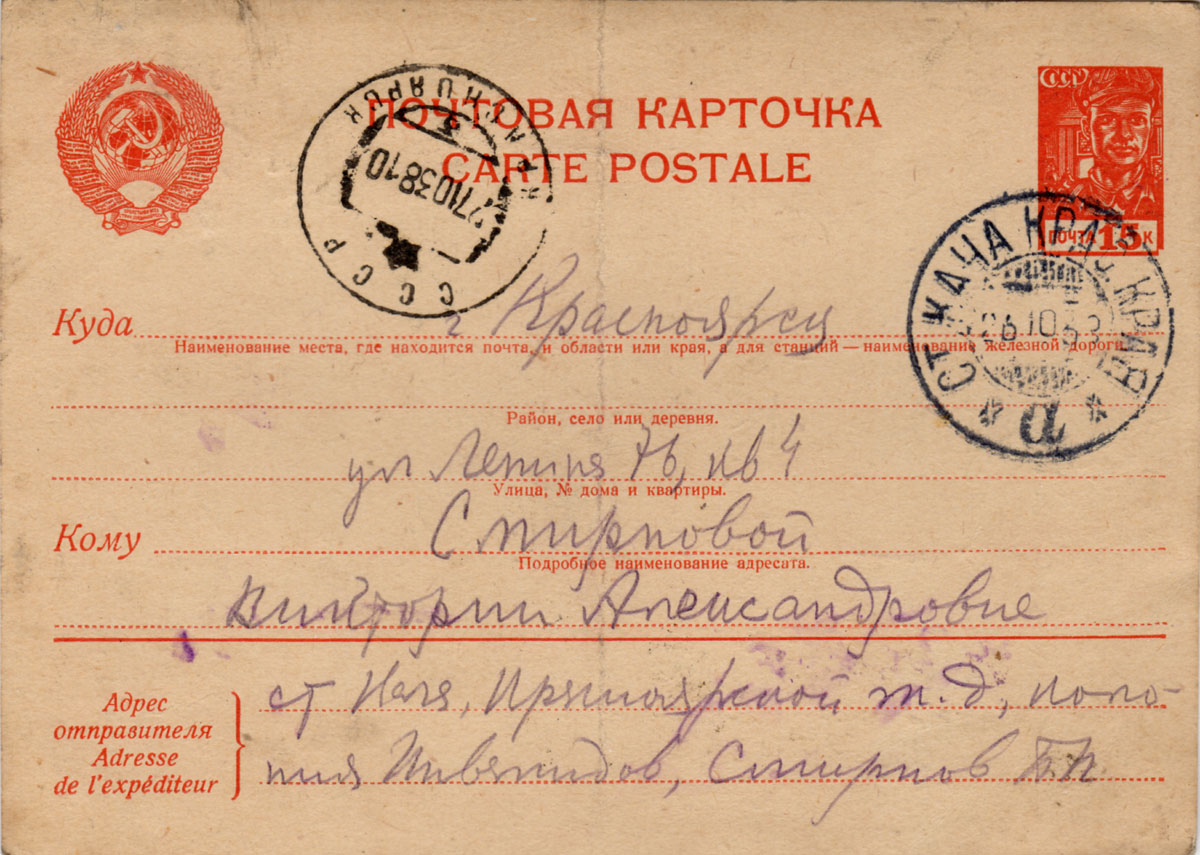 ПОЧТОВАЯ КАРТОЧКА
CARTE POSTALE
СССР
ПОЧТА 15 К
КРАСНОЯРСК
27 10 38 10
СССР
СТ КАЧА КРАС. КРАЯ
26.10.38
Куда г Красноярск
Наименование места, где находится почта, и области или края, а для станций — наименование железной дороги.
Район, село или деревня.
ул Ленина 76, кв 4
Улица, № дома и квартиры.
Кому Смирновой
Подробное наименование адресата.
Виктории Александровне
Адрес
отправителя
Adresse
de l'expéditeur
ст Кача, Красноярской ж.д, коло-
ния Инвалидов, Смирнов